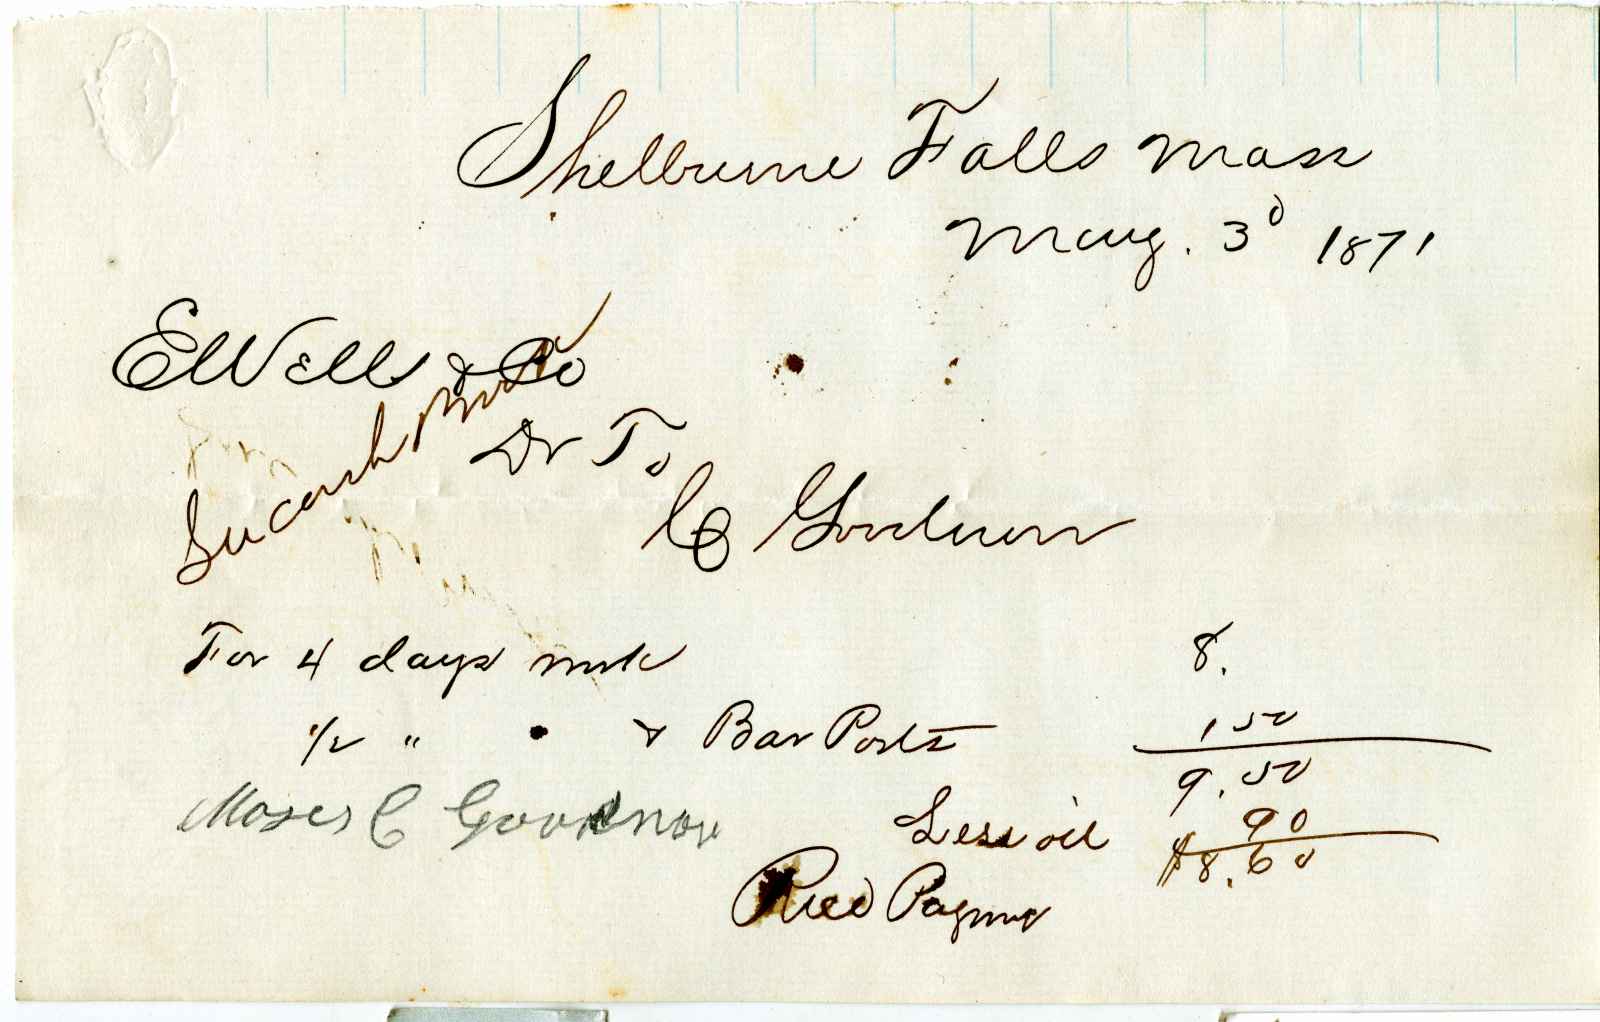 Shelburne Falls Mass
May. 3d 1871
E Wells & Co
In cash Book
Dr To
C Goodnow
For 4 days work
1/2 " " & Bar Posts
8.
1 50
9.50
Less oil 90
$8.60
Moses C Goodnow
Recd Payment